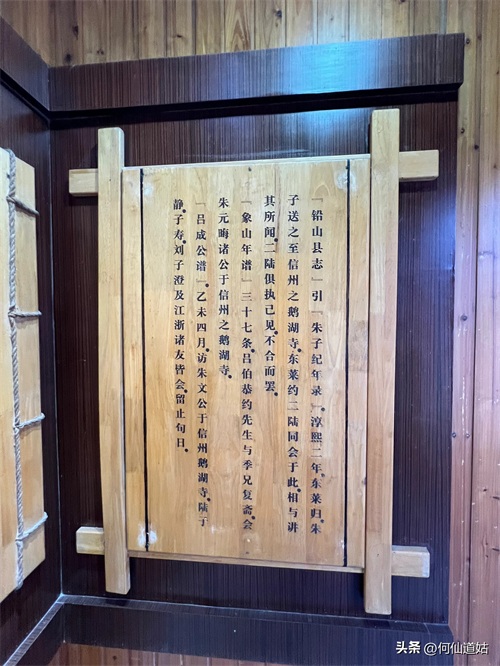 「铅山县志」引「朱子纪年录」淳熙二年。东莱归。朱
子送之至信州之鹅湖寺。东莱约二陆同会于此。相与讲
其所闻。二陆俱执己见。不合而罢。
「象山年谱」三十七条。吕伯恭约先生与季兄复斋。会
朱元晦诸公于信州之鹅湖寺。
「吕成公谱」乙未四月。访朱文公于信州鹅湖寺。陆子
静。子寿。刘子澄及江浙诸友皆会。留止旬日。
头条 @何仙道姑